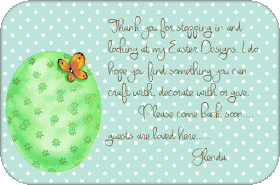 Thank you for stopping in and
looking at my Easter Designs. I do
hope you find something you can
craft with, decorate with or give.
Please come back soon....
guests are loved here......
Glenda